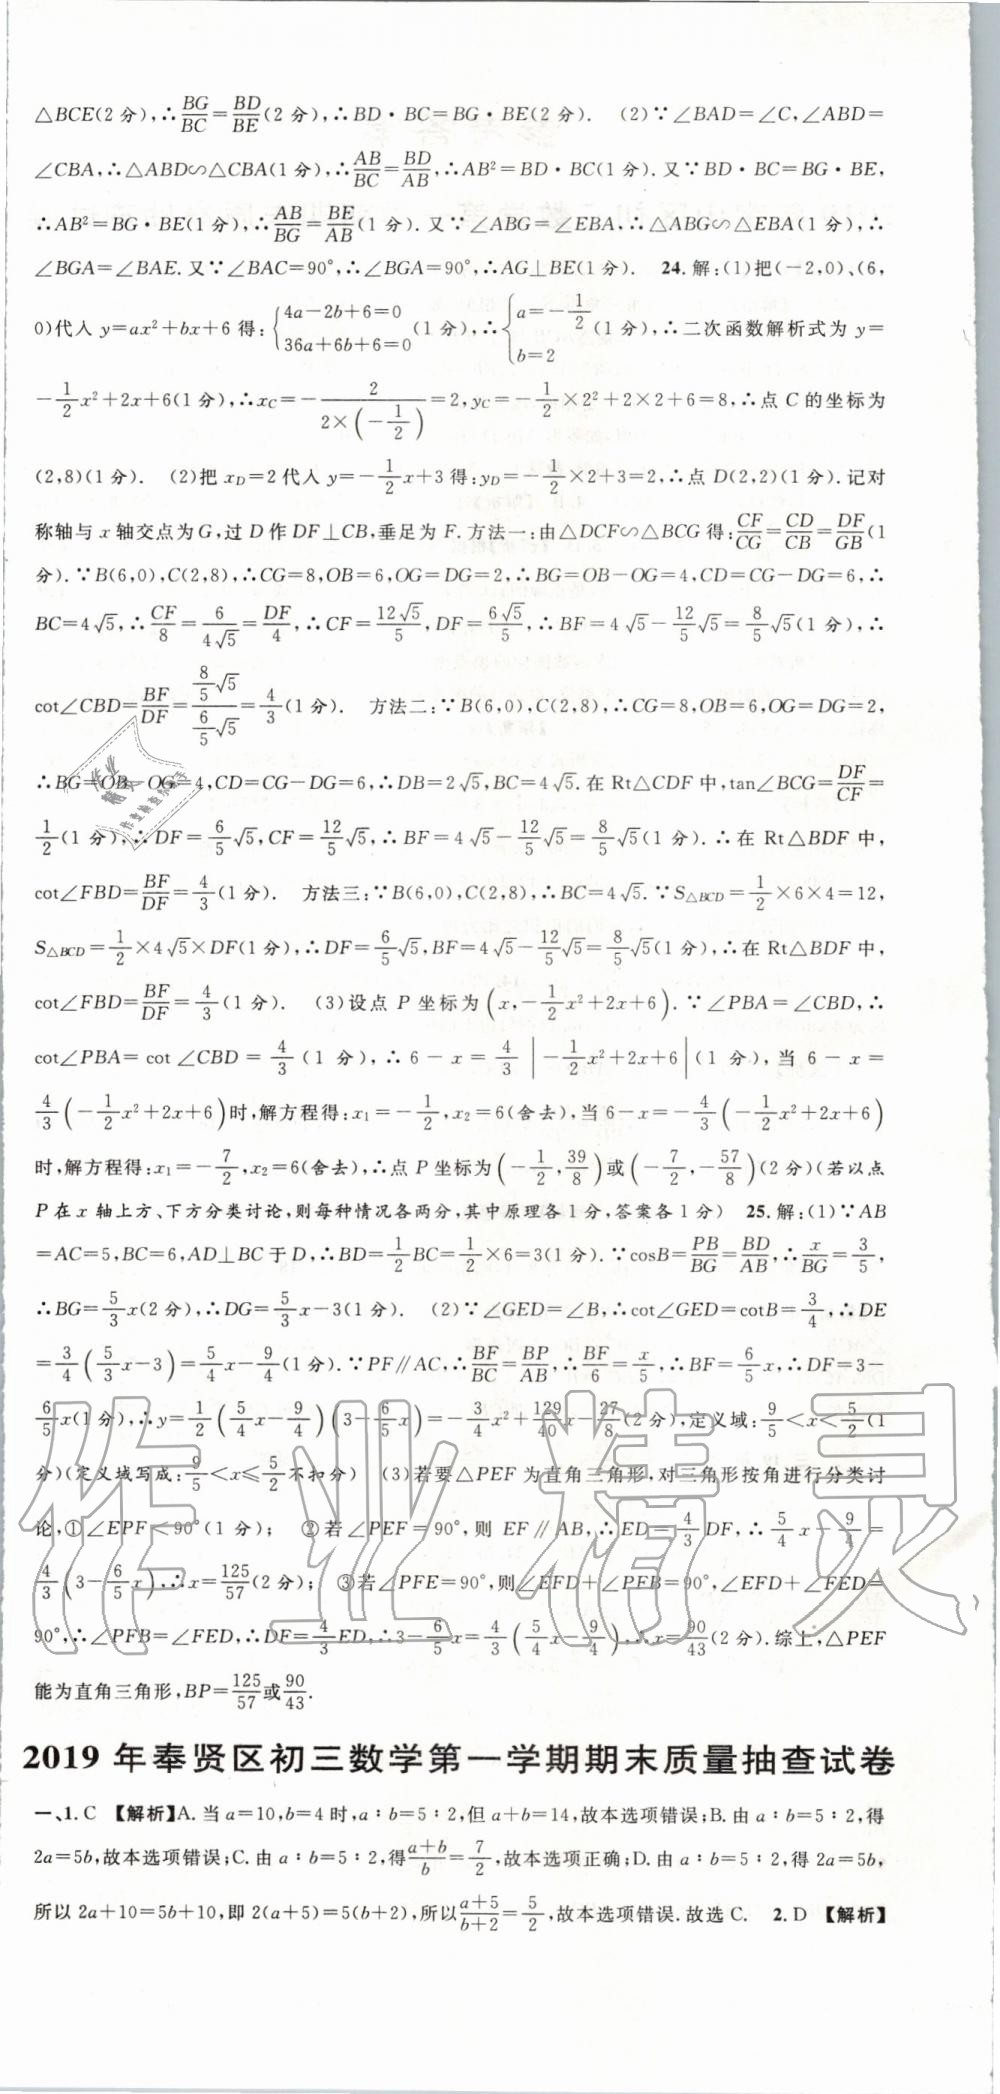 △BCE(2分),∴BG/BC=BD/BE(2分),∴BD·BC=BG·BE(2分). (2)∵∠BAD=∠C,∠ABD=
∠CBA,∴△ABD∽△CBA(1分),∴AB/BC=BD/AB,∴AB²=BD·BC(1分).又∵BD·BC=BG·BE,
∴AB²=BG·BE(1分),∴AB/BG=BE/AB(1分).又∵∠ABG=∠EBA,∴△ABG∽△EBA(1分),∴
∠BGA=∠BAE.又∵∠BAC=90°,∴∠BGA=90°,∴AG⊥BE(1分). 24.解:(1)把(-2,0)、(6,
0)代入y=ax²+bx+6得:{4a-2b+6=0 36a+6b+6=0(1分),∴{a=-1/2 b=2(1分),∴二次函数解析式为y=
-1/2x²+2x+6(1分),∴x_C=-2/(2×(-1/2))=2,y_C=-1/2×2²+2×2+6=8,∴点C的坐标为
(2,8)(1分). (2)把x_D=2代入y=-1/2x+3得:y_D=-1/2×2+3=2,∴点D(2,2)(1分).记对
称轴与x轴交点为G,过D作DF⊥CB,垂足为F.方法一:由△DCF∽△BCG得:CF/CG=CD/CB=DF/GB(1
分).∵B(6,0),C(2,8),∴CG=8,OB=6,OG=DG=2,∴BG=OB-OG=4,CD=CG-DG=6,∴
BC=4√5,∴CF/8=6/(4√5)=DF/4,∴CF=12√5/5,DF=6√5/5,∴BF=4√5-12/5√5=8/5√5(1分),∴
cot∠CBD=BF/DF=(8/5√5)/(6/5√5)=4/3(1分). 方法二:∵B(6,0),C(2,8),∴CG=8,OB=6,OG=DG=2,
∴BG=OB-OG=4,CD=CG-DG=6,∴DB=2√5,BC=4√5.在Rt△CDF中,tan∠BCG=DF/CF=
1/2(1分),∴DF=6/5√5,CF=12/5√5,∴BF=4√5-12/5√5=8/5√5(1分).∴在Rt△BDF中,
cot∠FBD=BF/DF=4/3(1分). 方法三:∵B(6,0),C(2,8),∴BC=4√5.∵S△BCD=1/2×6×4=12,
S△BCD=1/2×4√5×DF(1分),∴DF=6/5√5,BF=4√5-12/5√5=8/5√5(1分),∴在Rt△BDF中,
cot∠FBD=BF/DF=4/3(1分). (3)设点P坐标为(x,-1/2x²+2x+6).∵∠PBA=∠CBD,∴
cot∠PBA=cot∠CBD=4/3(1分),∴6-x=4/3|-1/2x²+2x+6|(1分),当6-x=
4/3(-1/2x²+2x+6)时,解方程得:x₁=-1/2,x₂=6(舍去),当6-x=-4/3(-1/2x²+2x+6)
时,解方程得:x₁=-7/2,x₂=6(舍去),∴点P坐标为(-1/2,39/8)或(-7/2,-57/8)(2分)(若以点
P在x轴上方、下方分类讨论,则每种情况各两分,其中原理各1分,答案各1分) 25.解:(1)∵AB
=AC=5,BC=6,AD⊥BC于D,∴BD=1/2BC=1/2×6=3(1分).∵cosB=PB/BG=BD/AB,∴x/BG=3/5,
∴BG=5/3x(2分),∴DG=5/3x-3(1分). (2)∵∠GED=∠B,∴cot∠GED=cotB=3/4,∴DE
=3/4(5/3x-3)=5/4x-9/4(1分).∵PF∥AC,∴BF/BC=BP/AB,∴BF/6=x/5,∴BF=6/5x,∴DF=3-
6/5x(1分),∴y=1/2(5/4x-9/4)(3-6/5x)=-3/4x²+129/40x-27/8(2分),定义域:9/5<x<5/2(1
分)(定义域写成:9/5<x≤5/2不扣分) (3)若要△PEF为直角三角形,对三角形按角进行分类讨
论,①∠EPF<90°(1分); ②若∠PEF=90°,则EF∥AB,∴ED=4/3DF,∴5/4x-9/4=
4/3(3-6/5x),∴x=125/57(2分); ③若∠PFE=90°,则∠EFD+∠PFB=90°,∠EFD+∠FED=
90°,∴∠PFB=∠FED,∴DF=4/3ED,∴3-6/5x=4/3(5/4x-9/4),∴x=90/43(2分).综上,△PEF
能为直角三角形,BP=125/57或90/43.
2019年奉贤区初三数学第一学期期末质量抽查试卷
一、1.C 【解析】A.当a=10,b=4时,a∶b=5∶2,但a+b=14,故本选项错误;B.由a∶b=5∶2,得
2a=5b,故本选项错误;C.由a∶b=5∶2,得(a+b)/b=7/2,故本选项正确;D.由a∶b=5∶2,得2a=5b,
所以2a+10=5b+10,即2(a+5)=5(b+2),所以(a+5)/(b+2)=5/2,故本选项错误.故选C. 2.D 【解析】
作业精灵